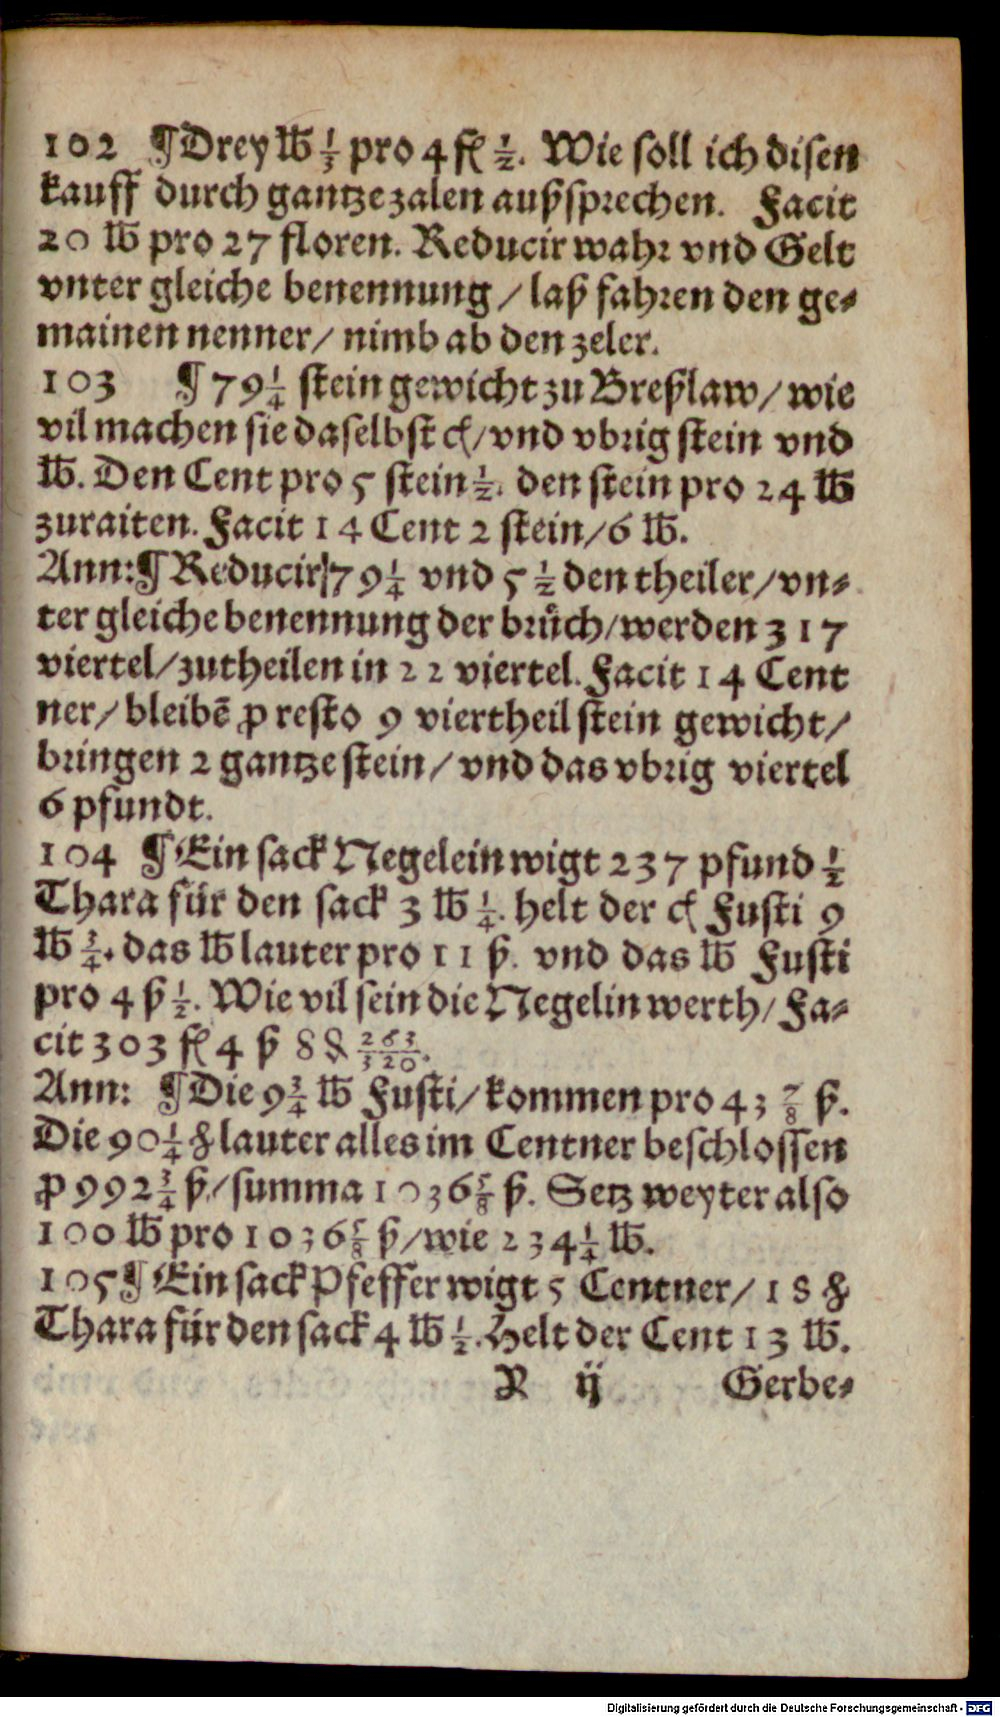 102 ¶Drey ℔ 1/3 pro 4 fl 1/2. Wie soll ich disen
kauff durch gantze zalen außsprechen. Facit
20 ℔ pro 27 floren. Reducir wahr vnd Gelt
vnter gleiche benennung / laß fahren den ge-
mainen nenner / nimb ab den zeler.
103 ¶ 79 1/4 stein gewicht zu Breßlaw / wie
vil machen sie daselbst ct / vnd vbrig stein vnd
℔. Den Cent pro 5 stein 1/2. den stein pro 24 ℔
zuraiten. Facit 14 Cent 2 stein / 6 ℔.
Ann: ¶ Reducir 79 1/4 vnd 5 1/2 den theiler / vn-
ter gleiche benennung der brůch / werden 317
viertel / zutheilen in 22 viertel. Facit 14 Cent
ner / bleibē ꝓ resto 9 viertheil stein gewicht /
bringen 2 gantze stein / vnd das vbrig viertel
6 pfundt.
104 ¶ Ein sack Negelein wigt 237 pfund 1/2
Thara für den sack 3 ℔ 1/4. helt der ct Fusti 9
℔ 3/4. das ℔ lauter pro 11 ß. vnd das ℔ Fusti
pro 4 ß 1/2. Wie vil sein die Negelin werth / Fa-
cit 303 fl 4 ß 8 ₰ 263/320.
Ann: ¶Die 9 3/4 ℔ Fusti / kommen pro 43 7/8 ß.
Die 90 1/4 ℔ lauter alles im Centner beschlossen
ꝓ 992 3/4 ß / summa 1036 5/8 ß. Setz weyter also
100 ℔ pro 1036 5/8 ß / wie 234 1/4 ℔.
105 ¶ Ein sack Pfeffer wigt 5 Centner / 18 ℔
Thara für den sack 4 ℔ 1/2. Helt der Cent 13 ℔.
R ij Gerbe-
Digitalisierung gefördert durch die Deutsche Forschungsgemeinschaft - DFG